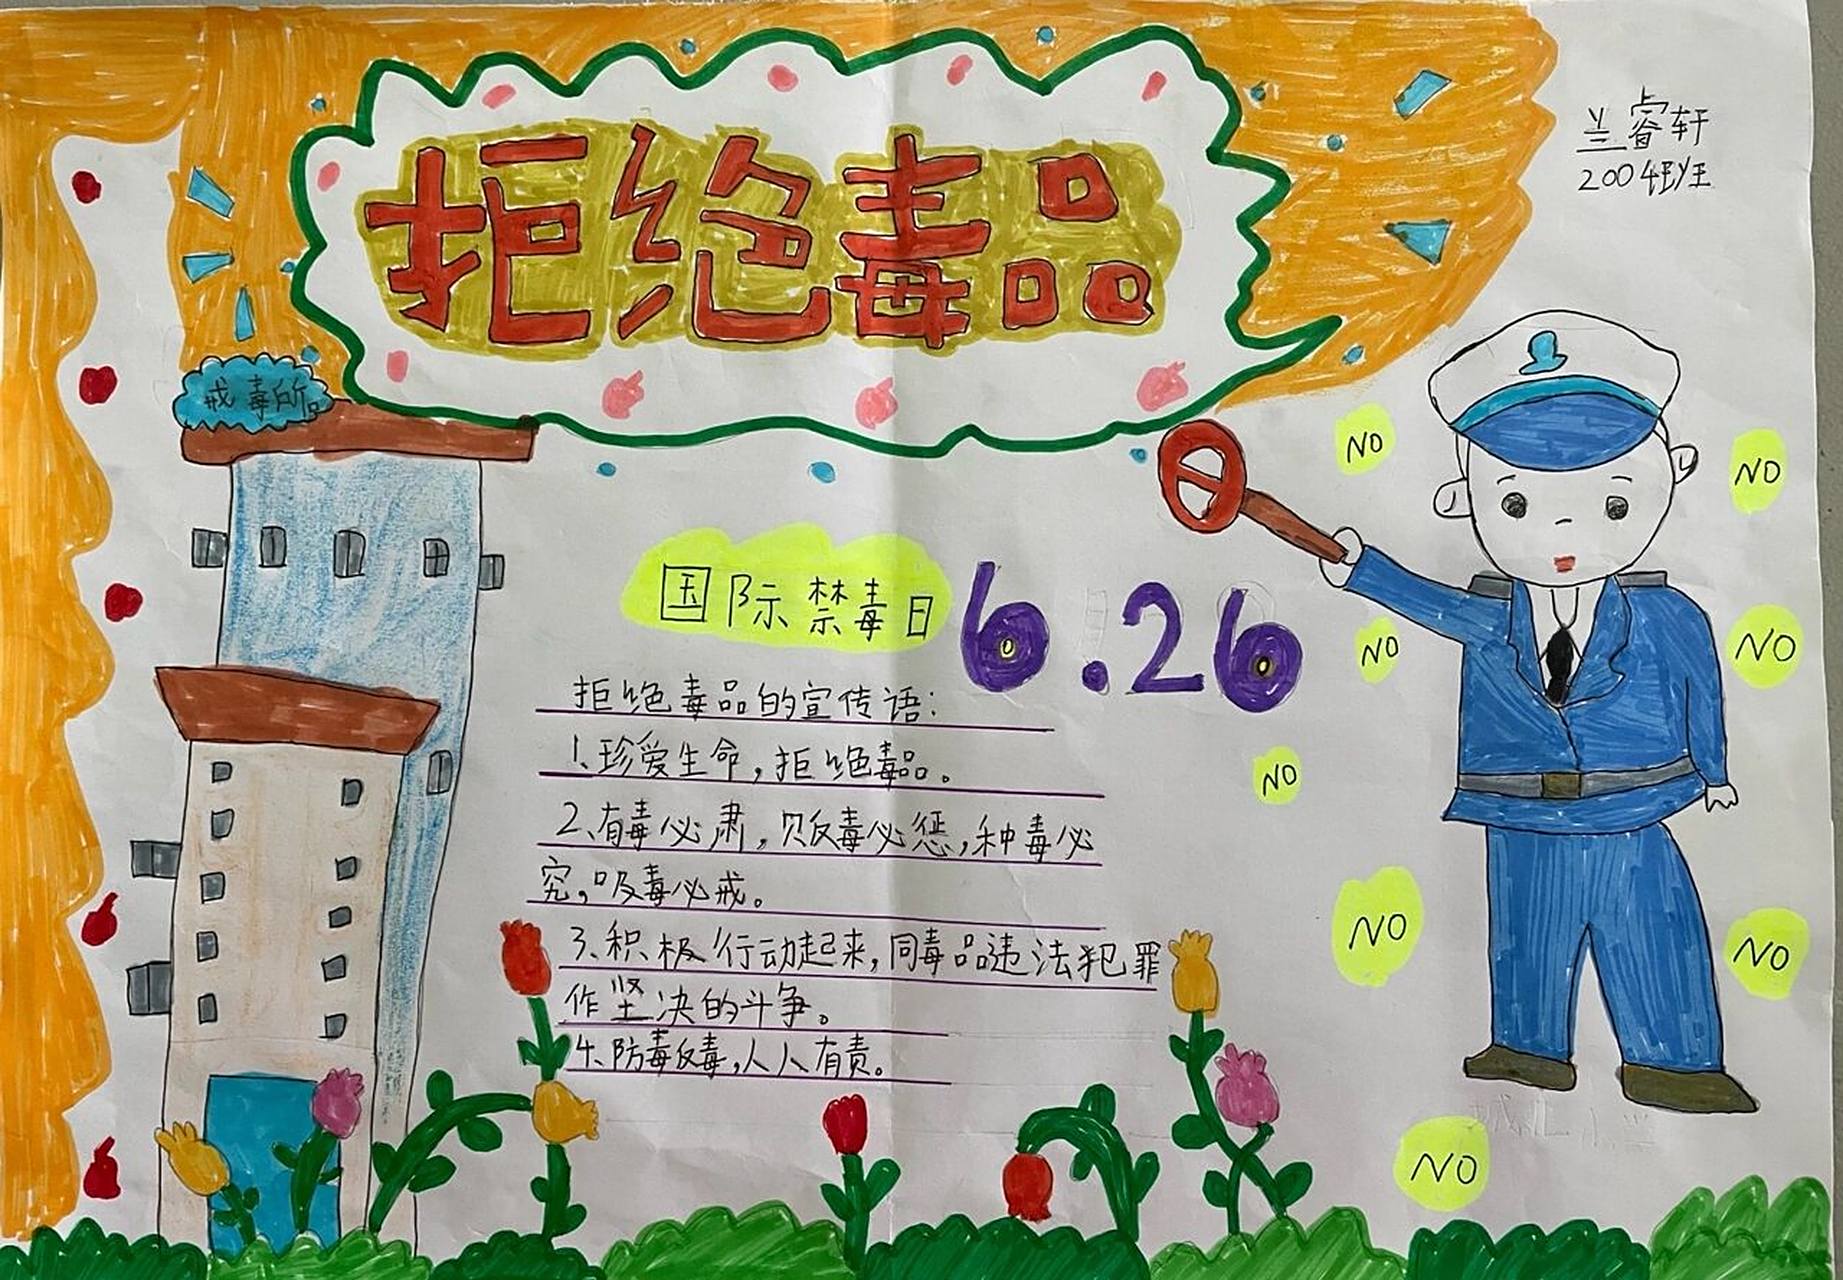 拒绝毒品
兰睿轩
2004班
戒毒所
国际禁毒日 6.26
拒绝毒品的宣传语：
1、珍爱生命，拒绝毒品。
2、有毒必肃，贩毒必惩，种毒必
究，吸毒必戒。
3、积极行动起来，同毒品违法犯罪
作坚决的斗争。
4、防毒反毒，人人有责。
NO
NO
NO
NO
NO
NO
NO
NO